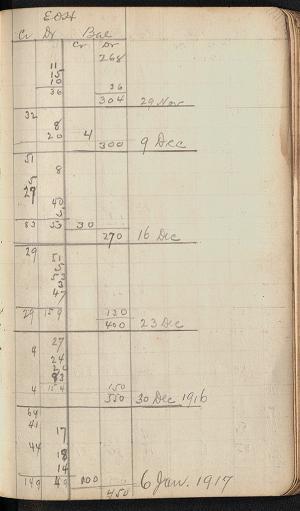 EOH
Cr Dr Bal
Cr Dr
268
11
15
10
36 36
304 29 Nov
32
8
20 4
300 9 Dec
51
8
5
27
40
5
83 53 30
270 16 Dec
29
51
5
53
3
47
29 159 130
400 23 Dec
27
4
24
20
83
4 154 150
550 30 Dec 1916
64
41
17
44
18
14
149 49 100
450 6 Jan. 1917